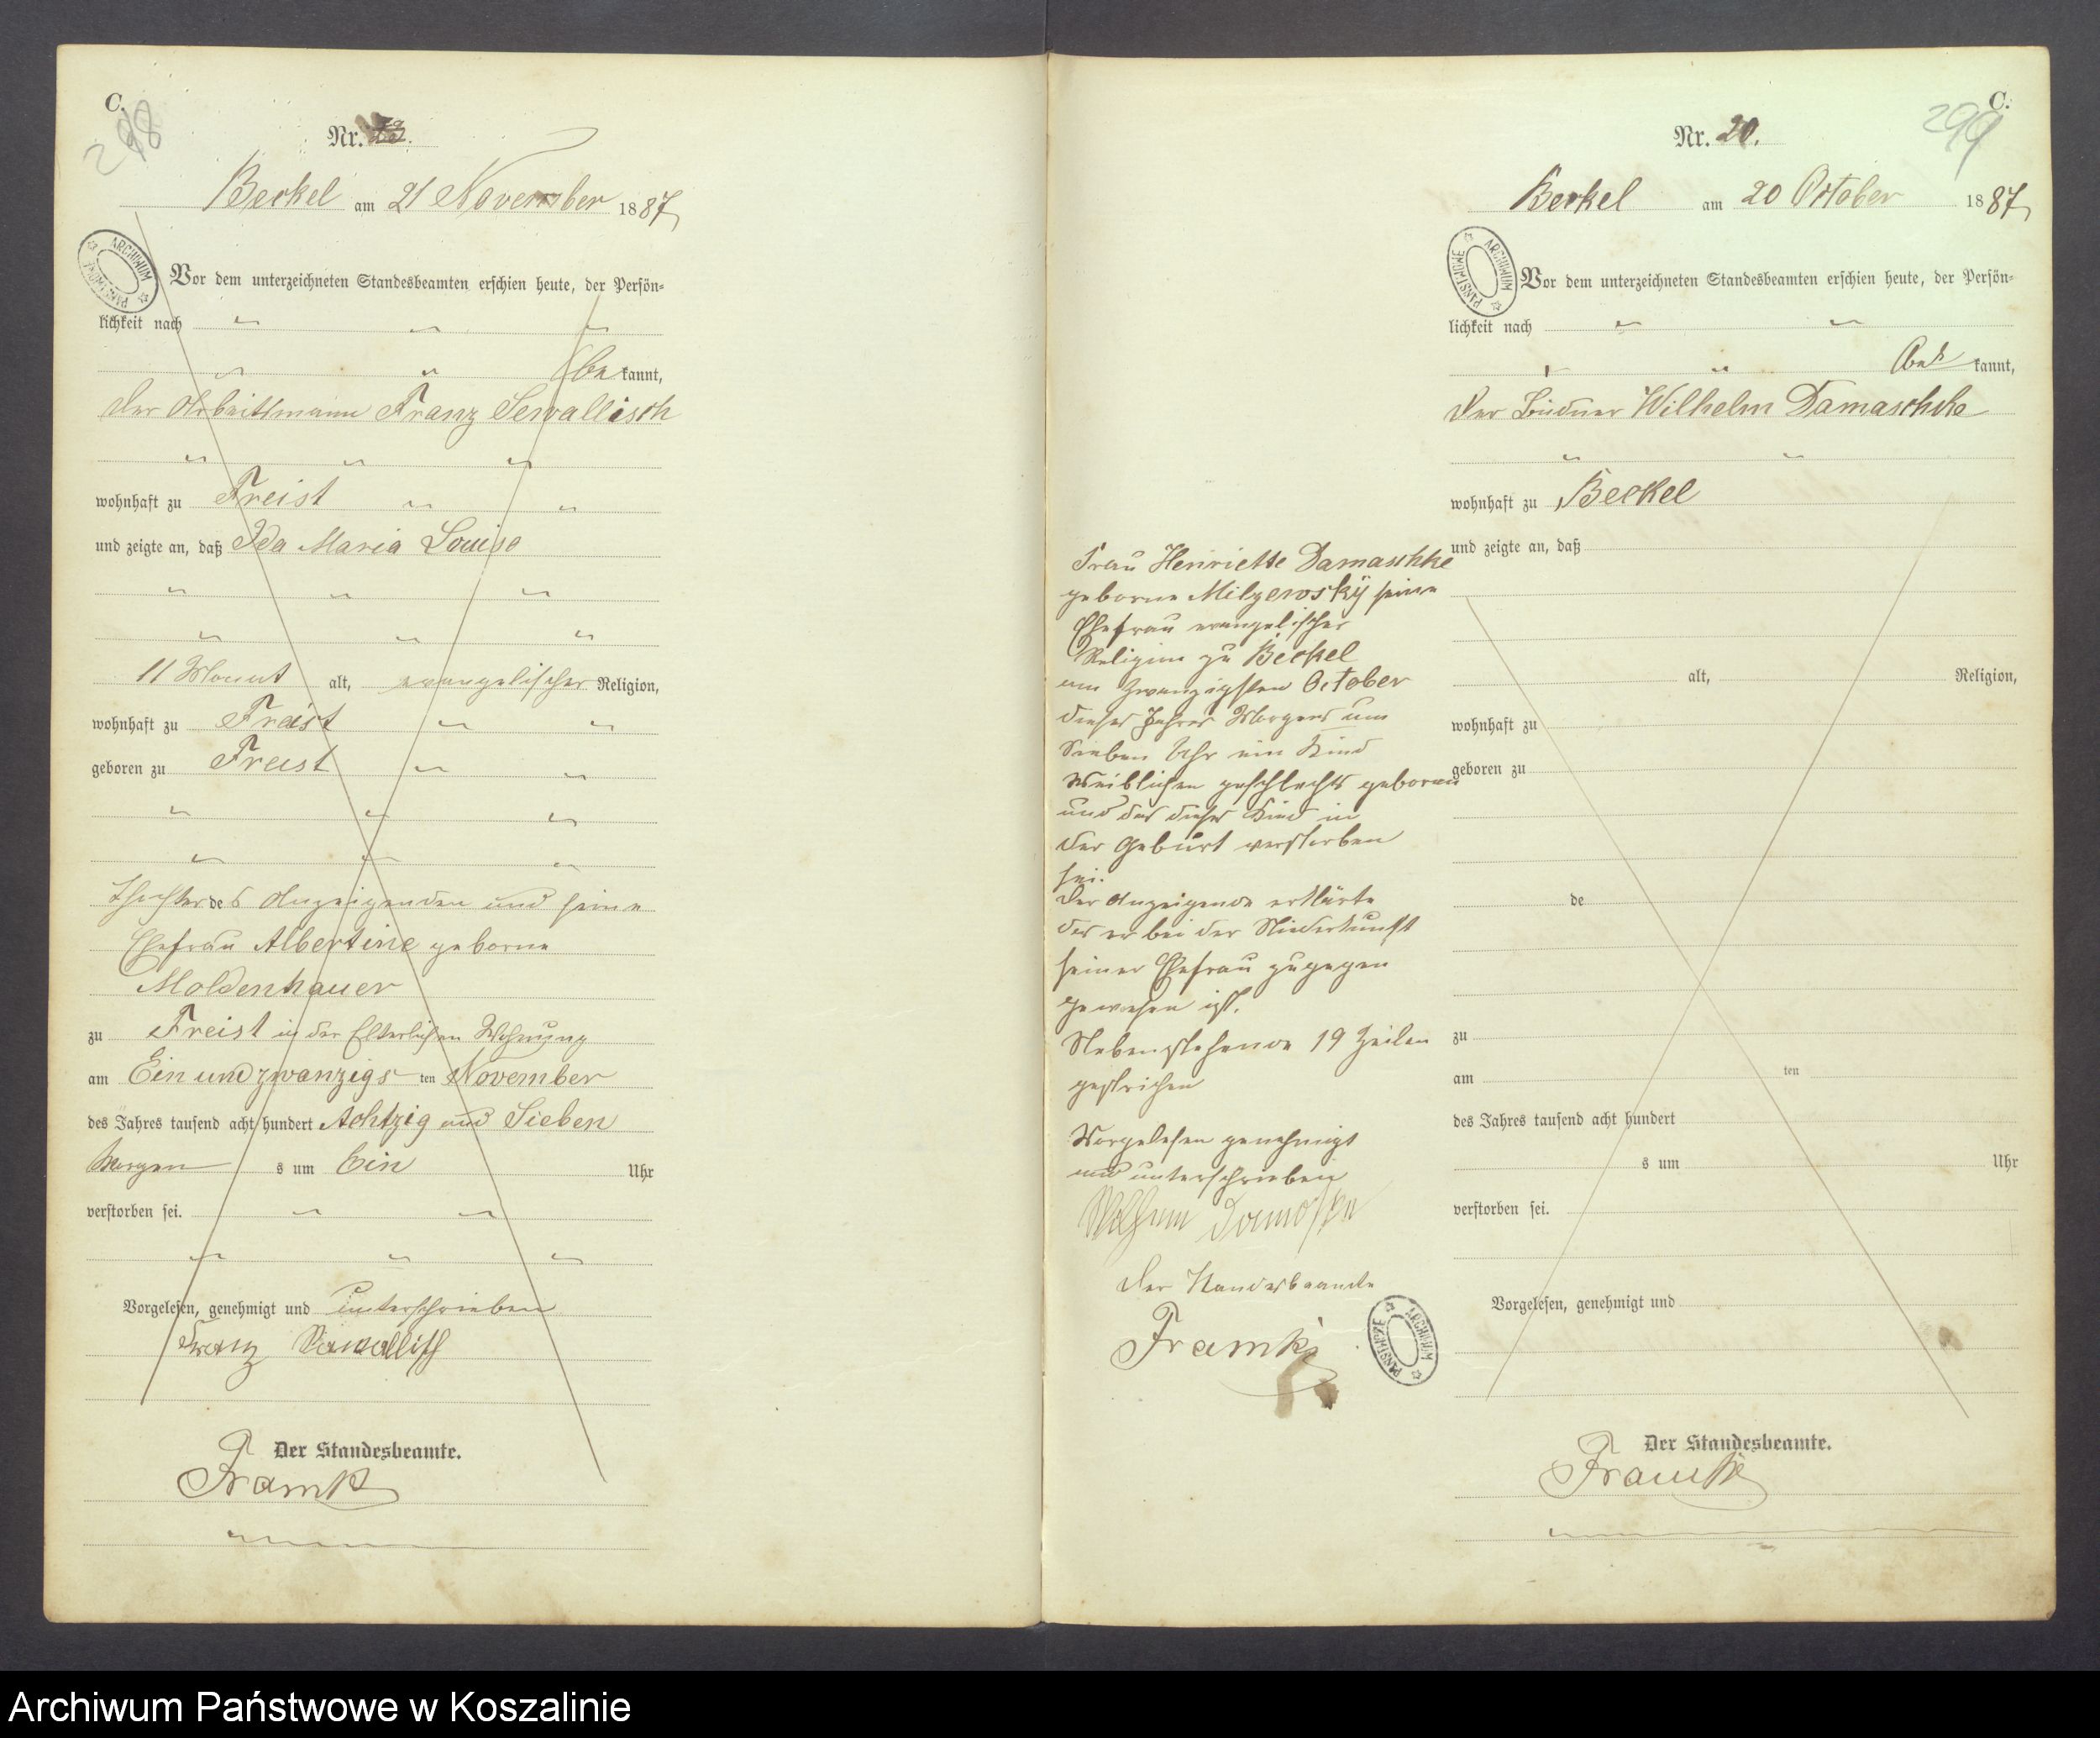 C.
298
Nr.
Beckel am 21 November 1887
ARCHIWUM PAŃSTWOWE
Vor dem unterzeichneten Standesbeamten erschien heute, der Persön-
lichkeit nach
be kannt,
der Arbeitsmann Franz Sewallisch
wohnhaft zu Freist
und zeigte an, daß Ida Maria Louise
11 Monat alt, evangelischer Religion,
wohnhaft zu Freist
geboren zu Freist
Tochter des Anzeigenden und seine
Ehefrau Albertine geborne
Moldenhauer
zu Freist in der Elterlichen Wohnung
am Ein und zwanzigs ten November
des Jahres tausend acht hundert Achtzig und Sieben
Morgen s um Ein Uhr
verstorben sei.
Vorgelesen, genehmigt und unterschrieben
Franz
Der Standesbeamte.
Framk
C.
299
Nr. 20.
Beckel am 20 October 1887
ARCHIWUM PAŃSTWOWE
Vor dem unterzeichneten Standesbeamten erschien heute, der Persön-
lichkeit nach
kannt,
der Büdner Wilhelm Damaschke
wohnhaft zu Beckel
und zeigte an, daß
Frau Henriette Damaschke
geborne Milzewsky seine
Ehefrau evangelischer
Religion zu Beckel
am zwanzigsten October
dieses Jahres Morgens um
Sieben Uhr ein Kind
Weiblichen geschlechts geboren
und das dieses Kind in
der Geburt verstorben
sei.
der Anzeigende erklärte
das er bei der Niederkunft
seiner Ehefrau zugegen
gewesen ist.
Nebenstehende 19 Zeilen
gestrichen
Vorgelesen genehmigt
und unterschrieben
Der Standesbeamte
Framk
ARCHIWUM PAŃSTWOWE
alt, Religion,
wohnhaft zu
geboren zu
de
zu
am ten
des Jahres tausend acht hundert
s um Uhr
verstorben sei.
Vorgelesen, genehmigt und
Der Standesbeamte.
Framk
Archiwum Państwowe w Koszalinie